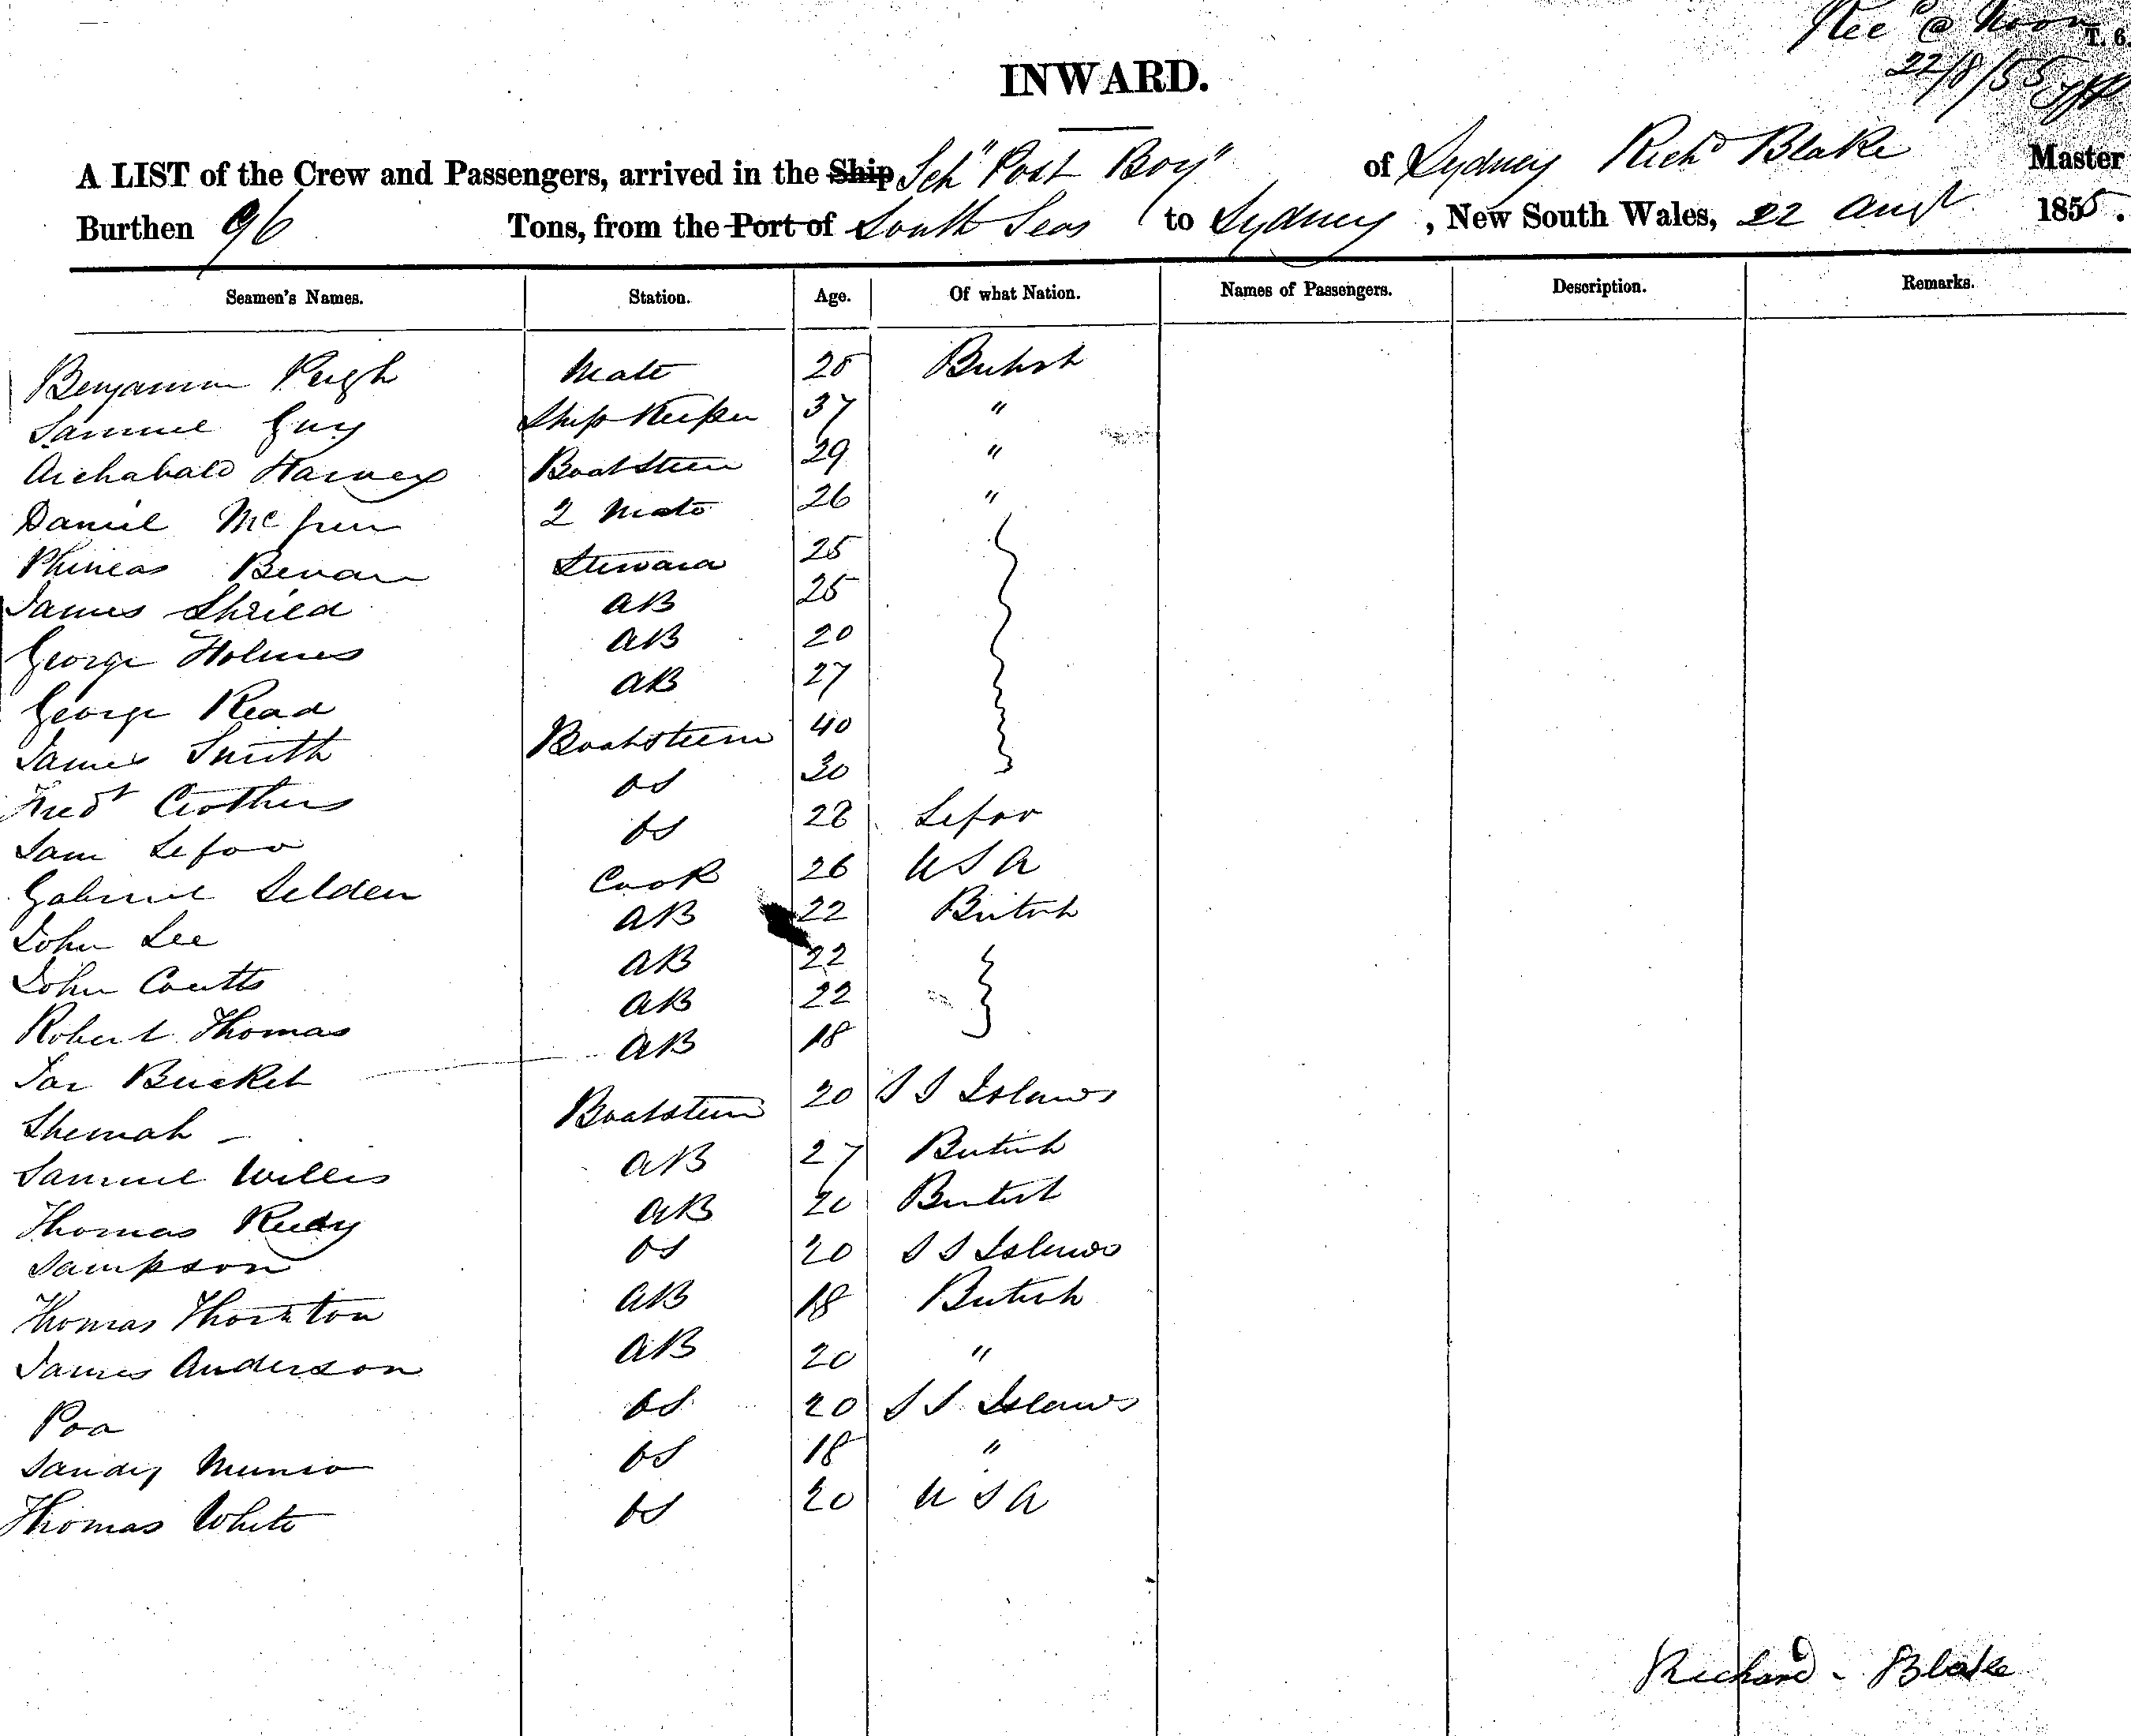 Rec'd @ Noon
T. 6.
22/8/55
INWARD.
A LIST of the Crew and Passengers, arrived in the Ship Sch "Post Boy" of Sydney Richd Blake Master
Burthen 96 Tons, from the Port of South Seas to Sydney, New South Wales, 22 Augt 1855.
Seamen's Names. Station. Age. Of what Nation. Names of Passengers. Description. Remarks.
Benjamin Pugh Mate 25 British
Samuel Guy Ship Keeper 37 "
Archabald Harvey Boatsteer 29 "
Daniel 2 Mate 26 "
Phineas Bevan Steward 25
James Shield AB 25
George Holmes AB 20
George Read AB 27
James Smith Boatsteerer 40
Fredk Crothers OS 30
Sam Lefoo OS 28 Lefoo
Gabriel Selden Cook 26 U S A
John Lee AB 22 British
John Coutts AB 22
Robert Thomas AB 22
Tar Bucket AB 18
Shemah - Boatsteer 20 S S Islands
Samuel Willis AB 27 British
Thomas Rudy AB 20 British
Sampson OS 20 S S Islands
Thomas Thornton AB 18 British
James Anderson AB 20 "
Poa OS 20 S S Islands
Sandy Munro OS 18 "
Thomas White OS 20 U S A
Richard - Blake